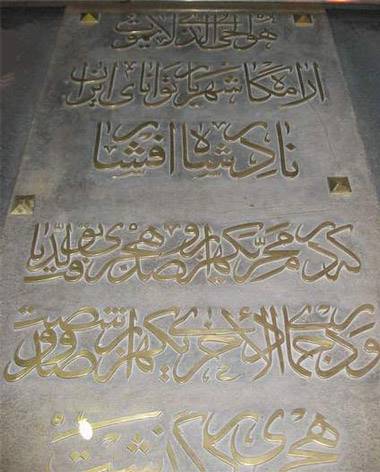 هو الحی الذی لایموت
آرامگاه شهریار توانای ایران
نادرشاه افشار
که در محرّم یکهزار و صد هجری تولّد یافت
و در جمادی الأخری یکهزار و صد و شصت
هجری درگذشت